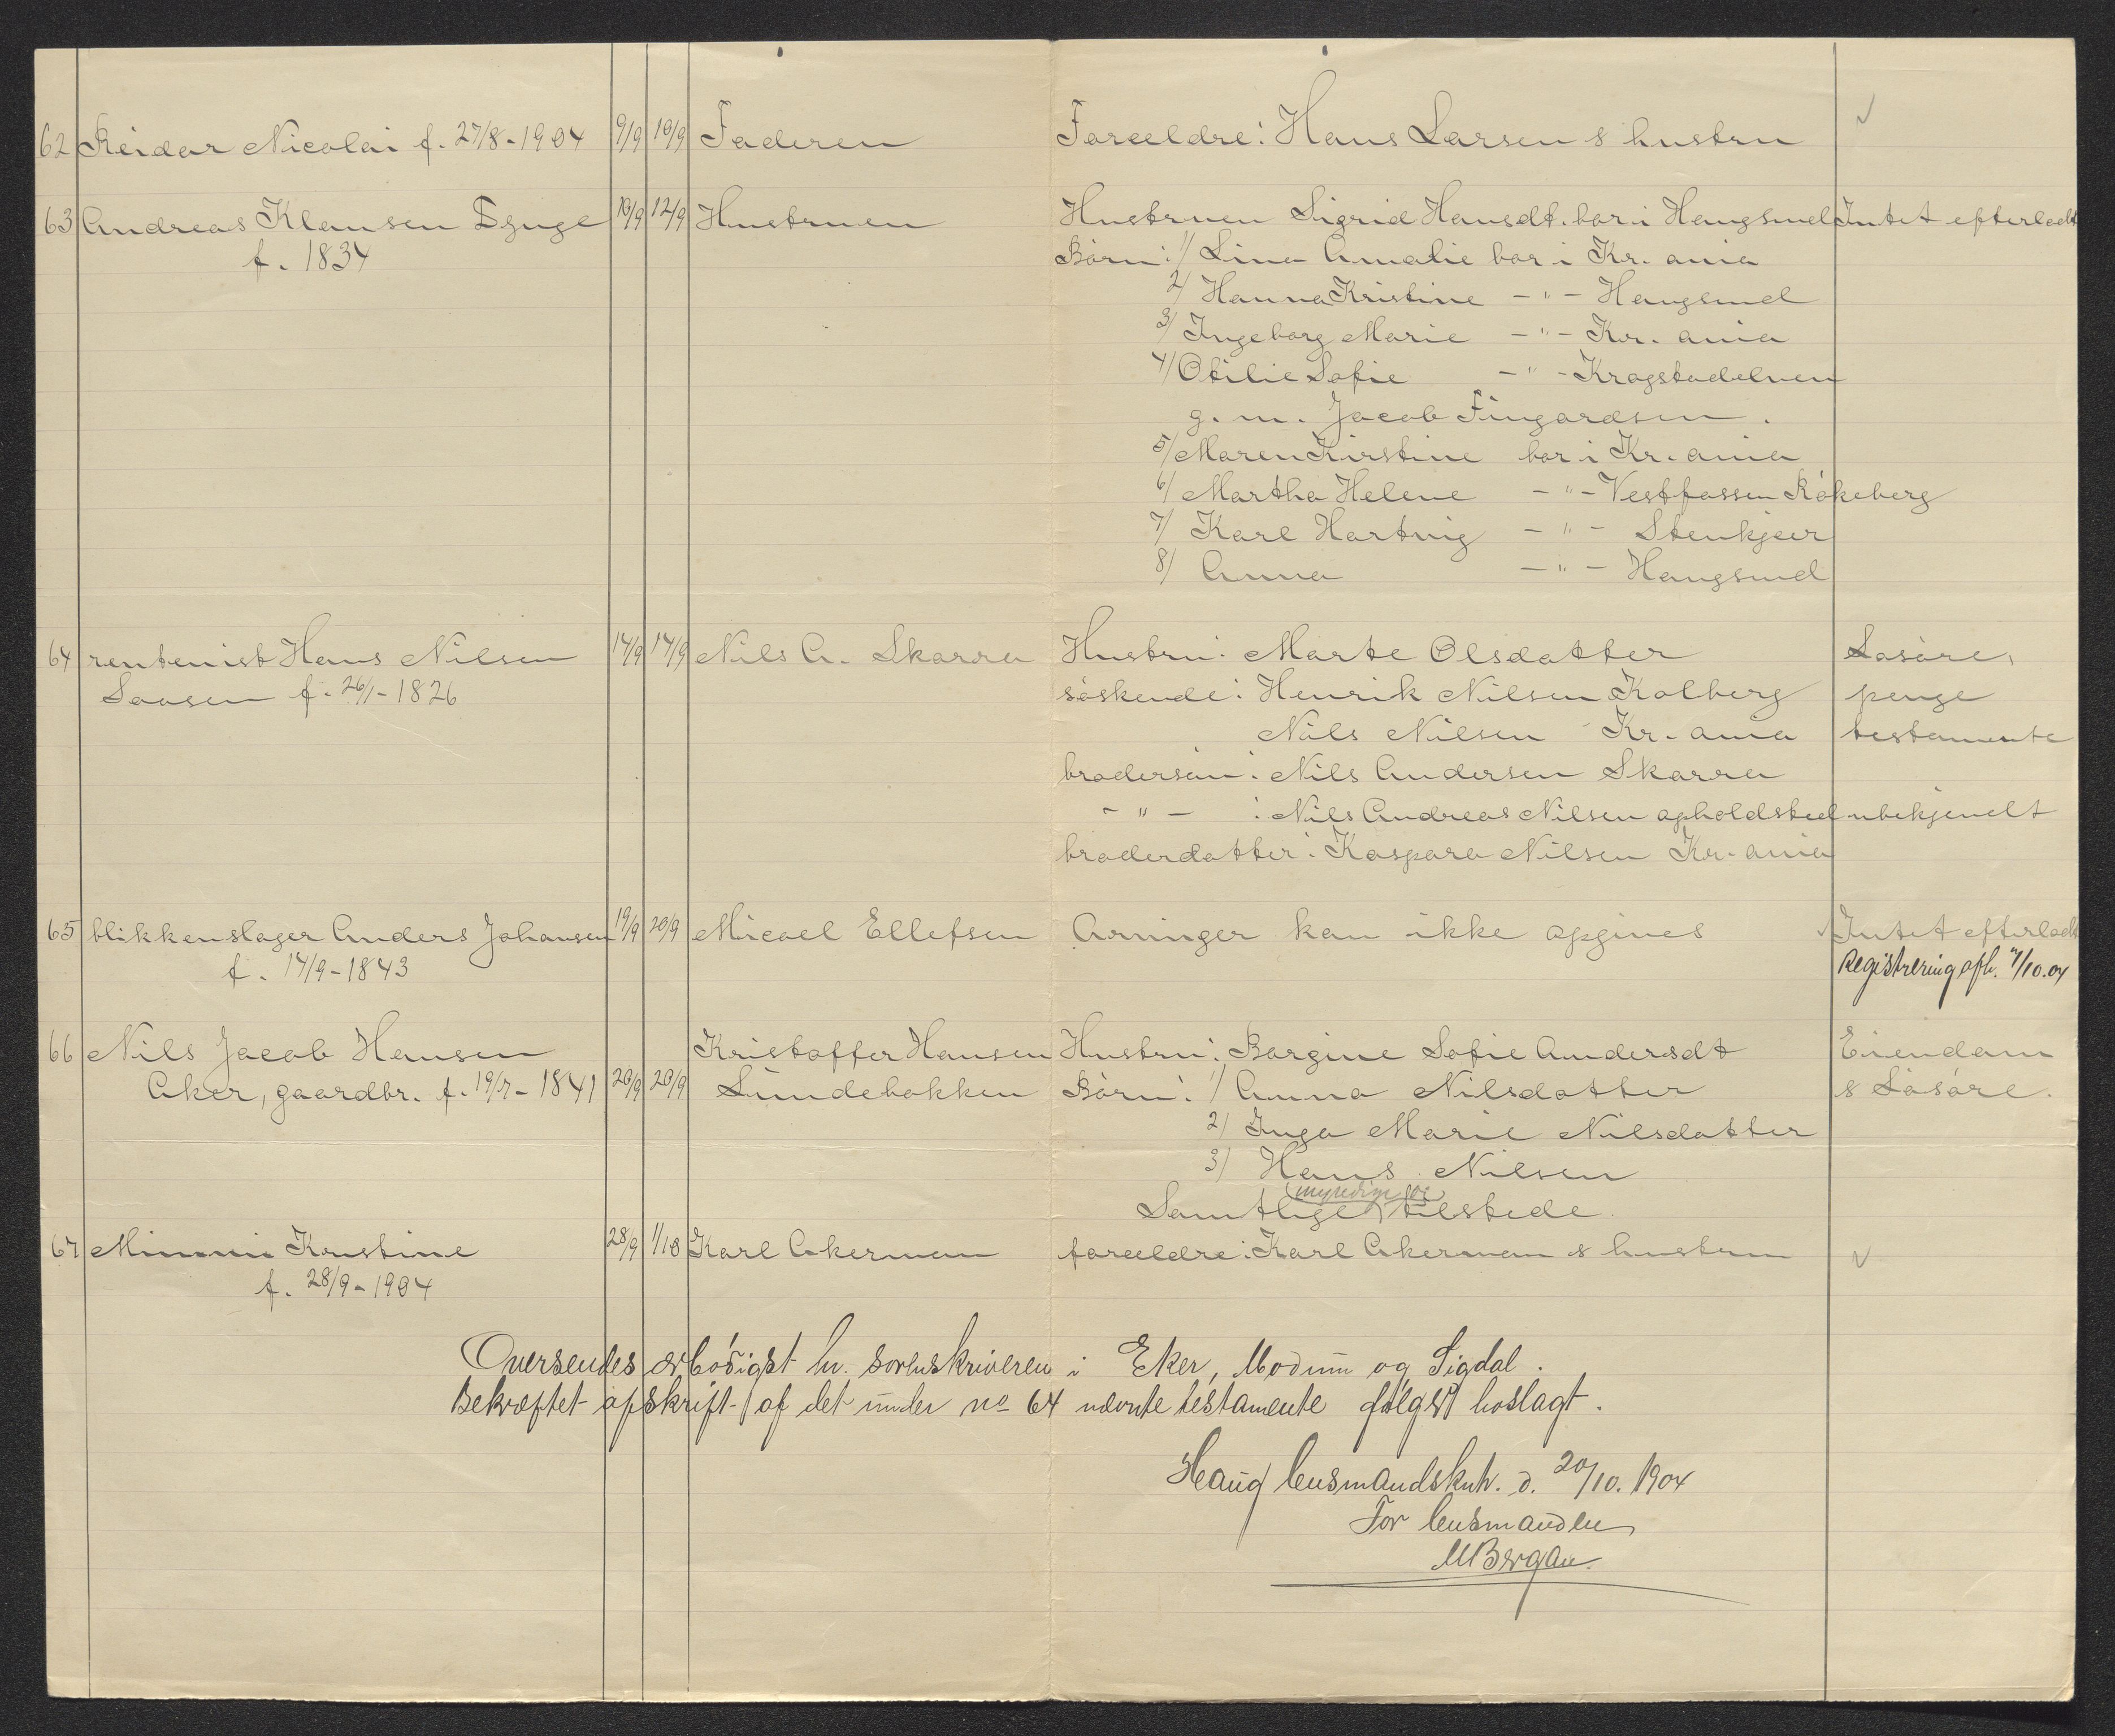 62 Reidar Nicolai f. 27/8-1904 9/9 10/9 Faderen Forældre: Hans Larsen & hustru
63 Andreas Klausen Dynge 10/9 12/9 Hustruen Hustruen Sigrid Hansdt. bor i Hougsund Intet efterladt
f. 1834 Børn: 1/ Lina Amalie bor i Kr.ania
2/ Hanna Kristine -"- Hougsund
3/ Ingeborg Marie -"- Kr.ania
4/ Otilie Sofie -"- Krogstadelven
g. m. Jacob Fingardsen.
5/ Maren Kirstine bor i Kr.ania
6/ Martha Helene -"- Vestfossen Røkeberg
7/ Karl Hartvig -"- Stenkjær
8/ Anna -"- Hougsund
64 rentenist Hans Nilsen 14/9 17/9 Nils A. Skarra Hustru: Marte Olsdatter Løsøre,
Loosen f. 26/1-1826 søskende: Henrik Nilsen Kolberg penge
Nils Nilsen Kr.ania testamente
brodersøn: Nils Andersen Skarra
-"- : Nils Andreas Nilsen opholdsted ubekjendt
broderdatter: Kaspara Nilsen Kr.ania
65 blikkenslager Anders Johansen 19/9 20/9 Micael Ellefsen Arvinger kan ikke opgives Intet efterladt
f. 14/9-1843 Registrering afh. 7/10.04
66 Nils Jacob Hansen Kristoffer Hansen Hustru: Borgine Sofie Andersdt Eiendom
Aker, gaardbr. f. 19/7-1841 20/9 20/9 Lundebakken Børn: 1/ Anna Nilsdatter & Løsøre.
2/ Inga Marie Nilsdatter
3/ Hans Nilsen
myndige og
Samtlige tilstede.
67 Minni Kristine 28/9 1/10 Karl Akerman forældre: Karl Akerman & hustru
f. 28/9-1904
Oversendes ærbødigst hr. sorenskriveren i Eker, Modum og Sigdal.
Bekræftet afskrift af det under no 64 nævnte testamente følger hoslagt.
Haug lensmandskntr. d. 20/10. 1904
For lensmanden
M Bergan